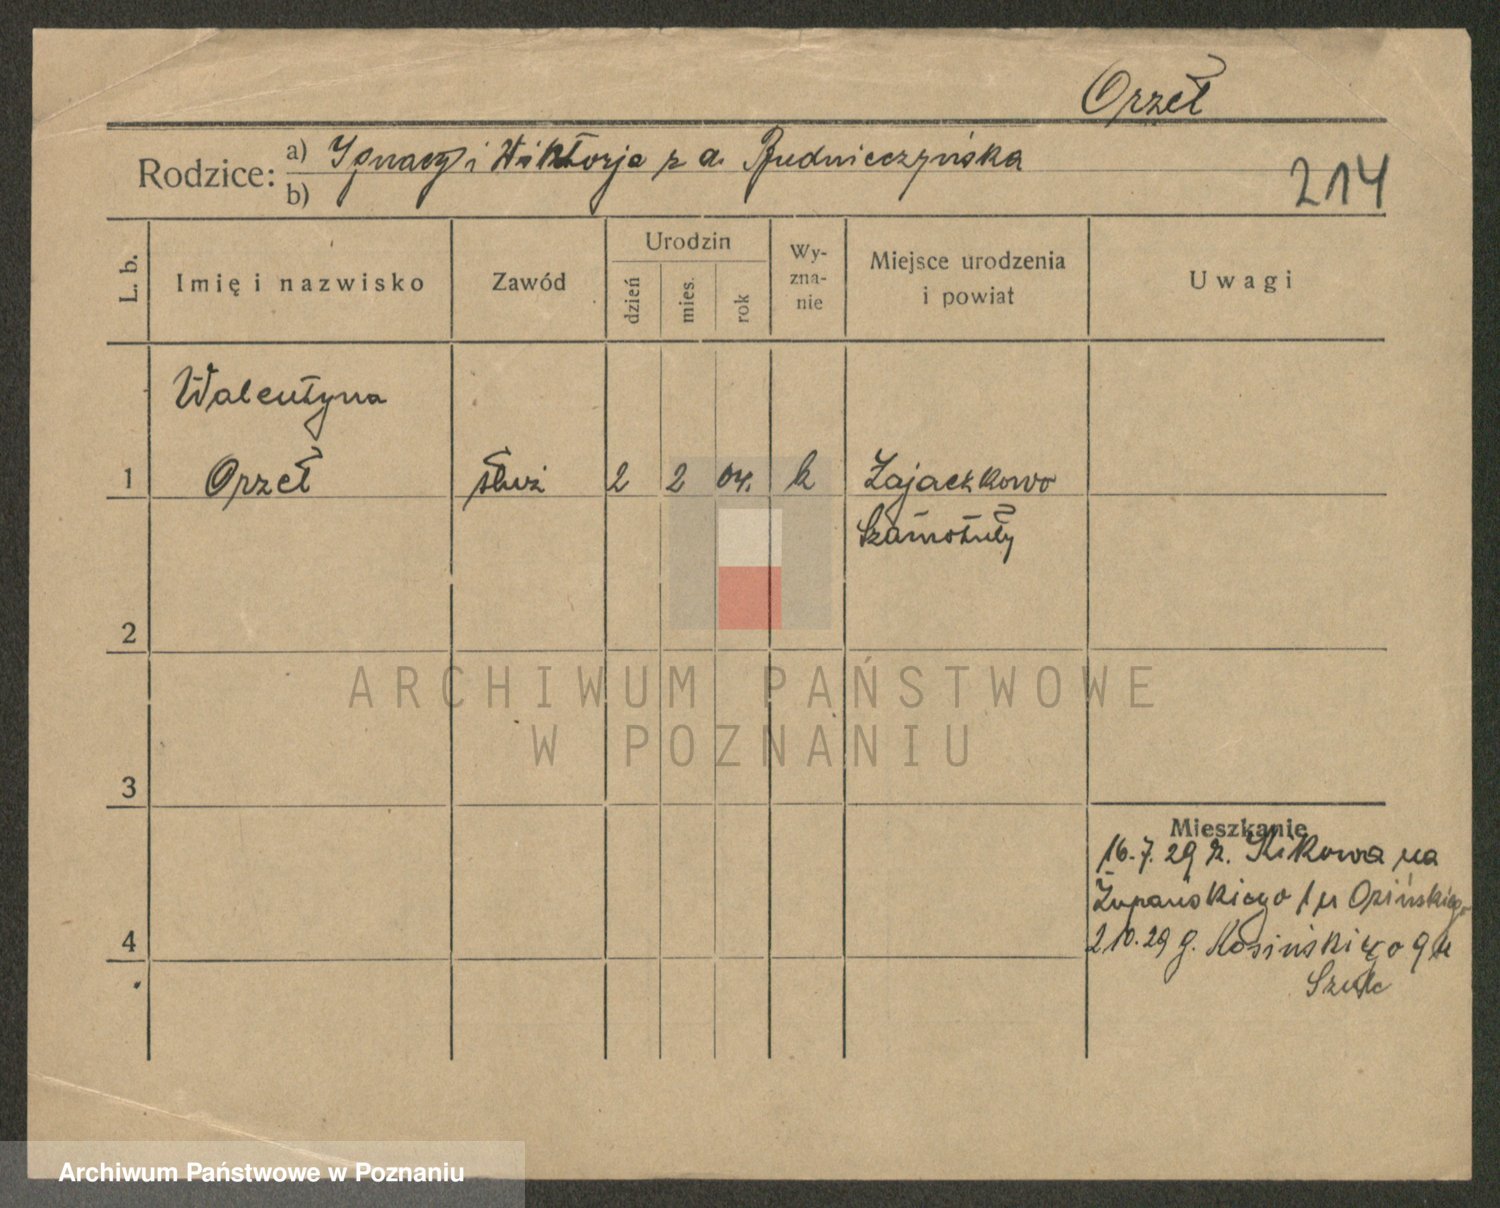 Orzeł
Rodzice: a) Ignacy i Wiktorja z d. Budnieczyńska
b)
214
L. b. Imię i nazwisko Zawód Urodzin dzień mies. rok Wyznanie Miejsce urodzenia i powiat Uwagi
Walentyna
1 Orzeł służ 2 2 04. k Zajaczkowo
Szamotuły
2
3
Mieszkanie
16. 7. 29 z. Kikowa na
Żupańskiego 1 u Opińskiego
4 2 10. 29 g. Kosińskiego 9 u
Szulc
ARCHIWUM PAŃSTWOWE
W POZNANIU
Archiwum Państwowe w Poznaniu